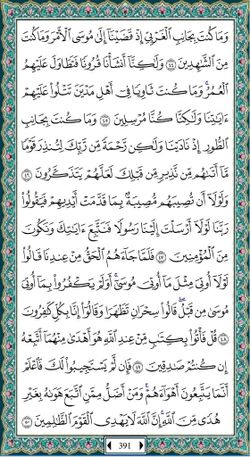 وَمَا كُنتَ بِجَانِبِ ٱلْغَرْبِىِّ إِذْ قَضَيْنَآ إِلَىٰ مُوسَى ٱلْأَمْرَ وَمَا كُنتَ
مِنَ ٱلشَّٰهِدِينَ ٤٤ وَلَٰكِنَّآ أَنشَأْنَا قُرُونًا فَتَطَاوَلَ عَلَيْهِمُ
ٱلْعُمُرُ ۚ وَمَا كُنتَ ثَاوِيًا فِىٓ أَهْلِ مَدْيَنَ تَتْلُوا۟ عَلَيْهِمْ
ءَايَٰتِنَا وَلَٰكِنَّا كُنَّا مُرْسِلِينَ ٤٥ وَمَا كُنتَ بِجَانِبِ
ٱلطُّورِ إِذْ نَادَيْنَا وَلَٰكِن رَّحْمَةً مِّن رَّبِّكَ لِتُنذِرَ قَوْمًا
مَّآ أَتَىٰهُم مِّن نَّذِيرٍ مِّن قَبْلِكَ لَعَلَّهُمْ يَتَذَكَّرُونَ ٤٦
وَلَوْلَآ أَن تُصِيبَهُم مُّصِيبَةٌۢ بِمَا قَدَّمَتْ أَيْدِيهِمْ فَيَقُولُوا۟
رَبَّنَا لَوْلَآ أَرْسَلْتَ إِلَيْنَا رَسُولًا فَنَتَّبِعَ ءَايَٰتِكَ وَنَكُونَ
مِنَ ٱلْمُؤْمِنِينَ ٤٧ فَلَمَّا جَآءَهُمُ ٱلْحَقُّ مِنْ عِندِنَا قَالُوا۟
لَوْلَآ أُوتِىَ مِثْلَ مَآ أُوتِىَ مُوسَىٰٓ ۚ أَوَلَمْ يَكْفُرُوا۟ بِمَآ أُوتِىَ
مُوسَىٰ مِن قَبْلُ ۖ قَالُوا۟ سِحْرَانِ تَظَٰهَرَا وَقَالُوٓا۟ إِنَّا بِكُلٍّ كَٰفِرُونَ
٤٨ قُلْ فَأْتُوا۟ بِكِتَٰبٍ مِّنْ عِندِ ٱللَّهِ هُوَ أَهْدَىٰ مِنْهُمَآ أَتَّبِعْهُ
إِن كُنتُمْ صَٰدِقِينَ ٤٩ فَإِن لَّمْ يَسْتَجِيبُوا۟ لَكَ فَٱعْلَمْ
أَنَّمَا يَتَّبِعُونَ أَهْوَآءَهُمْ ۚ وَمَنْ أَضَلُّ مِمَّنِ ٱتَّبَعَ هَوَىٰهُ بِغَيْرِ
هُدًى مِّنَ ٱللَّهِ ۚ إِنَّ ٱللَّهَ لَا يَهْدِى ٱلْقَوْمَ ٱلظَّٰلِمِينَ ٥٠
391